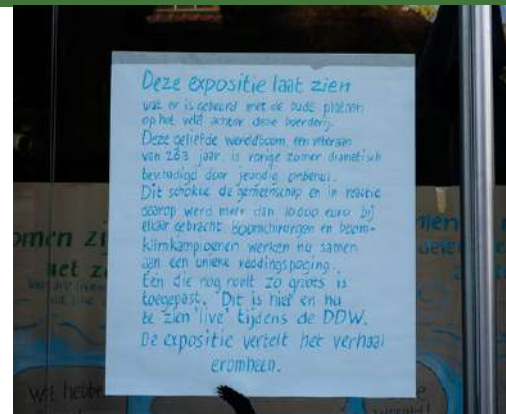 Deze expositie laat zien
wat er is gebeurd met de oude plataan
op het veld achter deze boerderij.
Deze geliefde wereldboom, een veteraan
van 263 jaar, is vorige zomer dramatisch
beschadigd door jeugdig onbenul.
Dit schokte de gemeenschap en in reactie
daarop werd meer dan 10.000 euro bij
elkaar gebracht. Boomchirurgen en boom-
klimkampioenen werken nu samen
aan een unieke reddingspoging.
Eén die nog nooit zo groots is
toegepast. Dit is hier en nu
te zien 'live' tijdens de DDW.
De expositie vertelt het verhaal
eromheen.
omen zi
het z
men
Wat hebbe